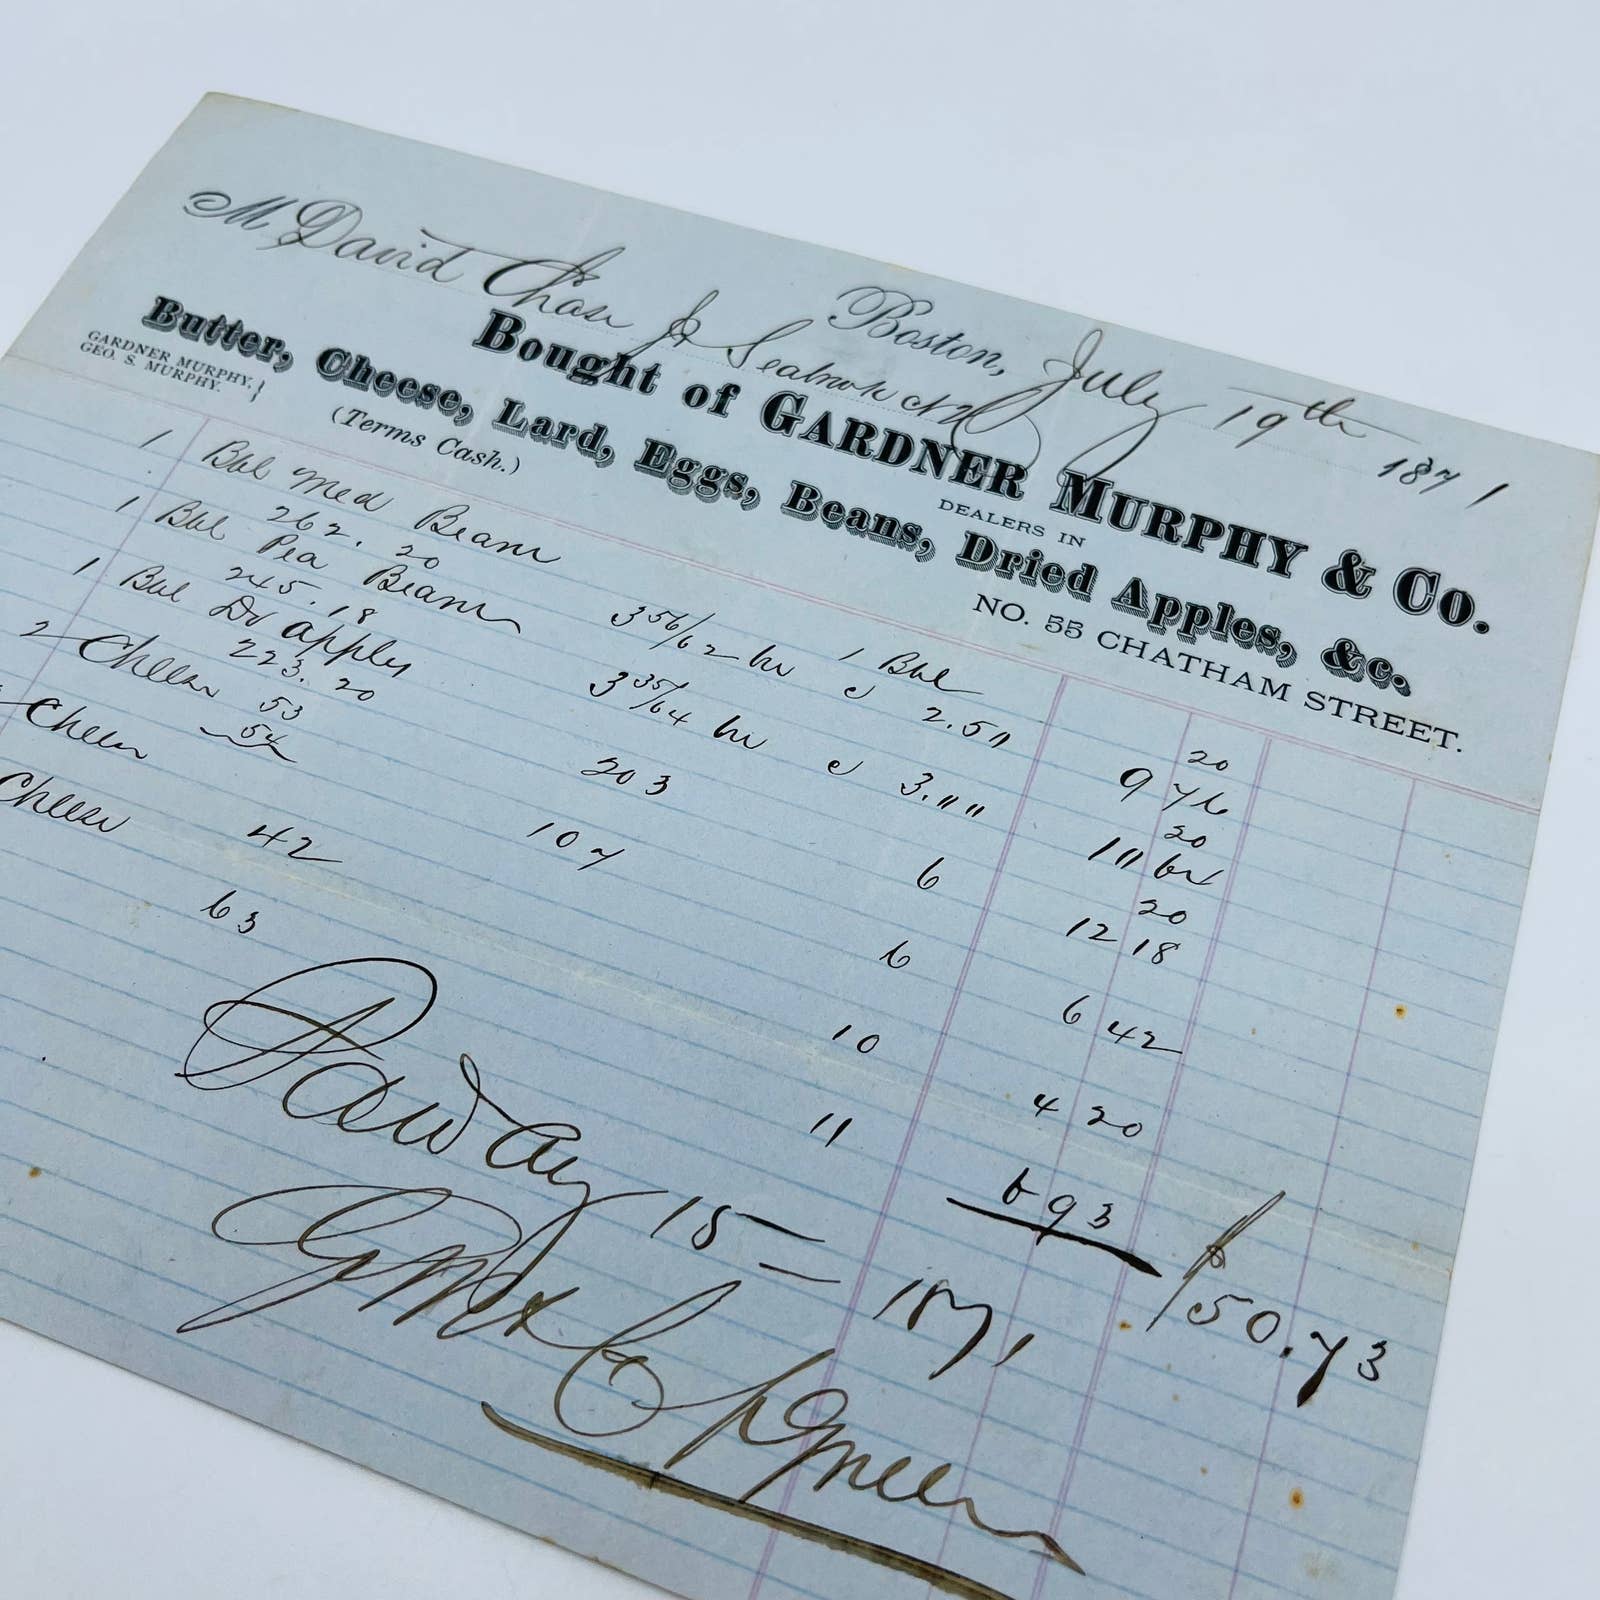 Boston, July 19th 1871
M. David Chase Jr Seabrook N
Bought of GARDNER MURPHY & Co.
DEALERS IN
Butter, Cheese, Lard, Eggs, Beans, Dried Apples, &c.
GARDNER MURPHY,
GEO. S. MURPHY.
(Terms Cash.)
NO. 55 CHATHAM STREET.
1 Bbl Med Beans 1 Bbl 20
262. 20 3 56/62 bu @ 2.50 9 76
1 Bbl Pea Beans 20
245. 18 3 35/64 bu @ 3.00 10 64
1 Bbl Dr apples 20
223. 20 203 6 12 18
2 Cheese 53
54 107 6 6 42
Cheese 42 10 4 20
Cheese 63 11 6 93
$50.73
Paid Aug 15 1871
G M & Co